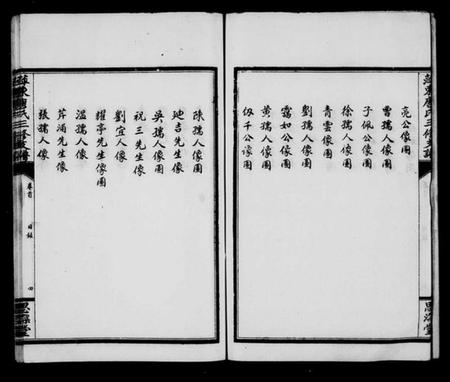 亮公像圖
曹孺人像圖
子佩公像圖
徐孺人像圖
青雲像圖
劉孺人像圖
靄如公像圖
黃孺人像圖
仞千公像圖
陳孺人像
廸吉先生像
吳孺人像
祝三先生像
劉宜人像
耀亭先生像圖
溫孺人像
芹浦先生像
張孺人像
卷首 目錄 四